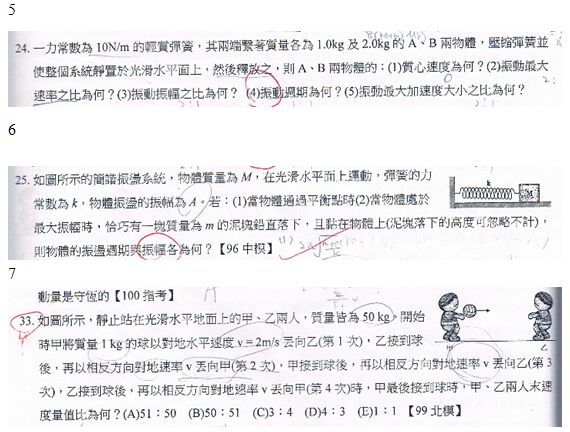 5
24. 一力常數為 10N/m 的輕質彈簧，其兩端繫著質量各為 1.0kg 及 2.0kg 的 A、B 兩物體，壓縮彈簧並
使整個系統靜置於光滑水平面上，然後釋放之，則 A、B 兩物體的：(1)質心速度為何？(2)振動最大
速率之比為何？(3)振動振幅之比為何？ (4)振動週期為何？(5)振動最大加速度大小之比為何？
6
25. 如圖所示的簡諧振盪系統，物體質量為 M，在光滑水平面上運動，彈簧的力
常數為 k，物體振盪的振幅為 A。若：(1)當物體通過平衡點時(2)當物體處於
最大振幅時，恰巧有一塊質量為 m 的泥塊鉛直落下，且黏在物體上(泥塊落下的高度可忽略不計)，
則物體的振盪週期與振幅各為何？【96 中模】
k
M
7
動量是守恆的【100 指考】
33. 如圖所示，靜止站在光滑水平地面上的甲、乙兩人，質量皆為 50 kg。開始
時甲將質量 1 kg 的球以對地水平速度 v = 2m/s 丟向乙(第 1 次)，乙接到球
後，再以相反方向對地速率 v 丟向甲(第 2 次)，甲接到球後，再以相反方向對地速率 v 丟向乙(第 3
次)，乙接到球後，再以相反方向對地速率 v 丟向甲(第 4 次)時，甲最後接到球時，甲、乙兩人末速
度量值比為何？(A)51：50 (B)50：51 (C)3：4 (D)4：3 (E)1：1 【99 北模】